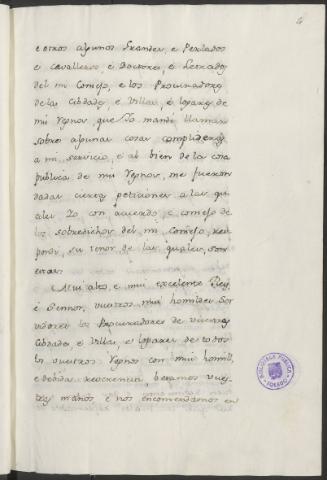 4
e otros algunos Grandes, e Perlados
e Cavalleros, e Doctores, e Letrados
del mi Consejo, e los Procuradores
de las Cibdades, e Villas, e logares de
mis Reynos, que Yo mandé llamar
sobre algunas cosas complideras
a mi servicio, e al bien de la cosa
publica de mis Reynos, me fueron
dadas ciertas peticiones a las qua
les Yo con acuerdo, e consejo de
los sobredichos del mi Consejo, res
pondi, su tenor de las quales, son
estas:
Mui alto, e mui excelente Rey,
e Sennor, vuestros mui homildes Ser
vidores los Procuradores de vuestras
Cibdades, e Villas, e logares de todos
los vuestros Reynos con mui homill
e debida reverencia, besamos vues
tras manos e nos encomendamos en
BIBLIOTECA PUBLICA
TOLEDO